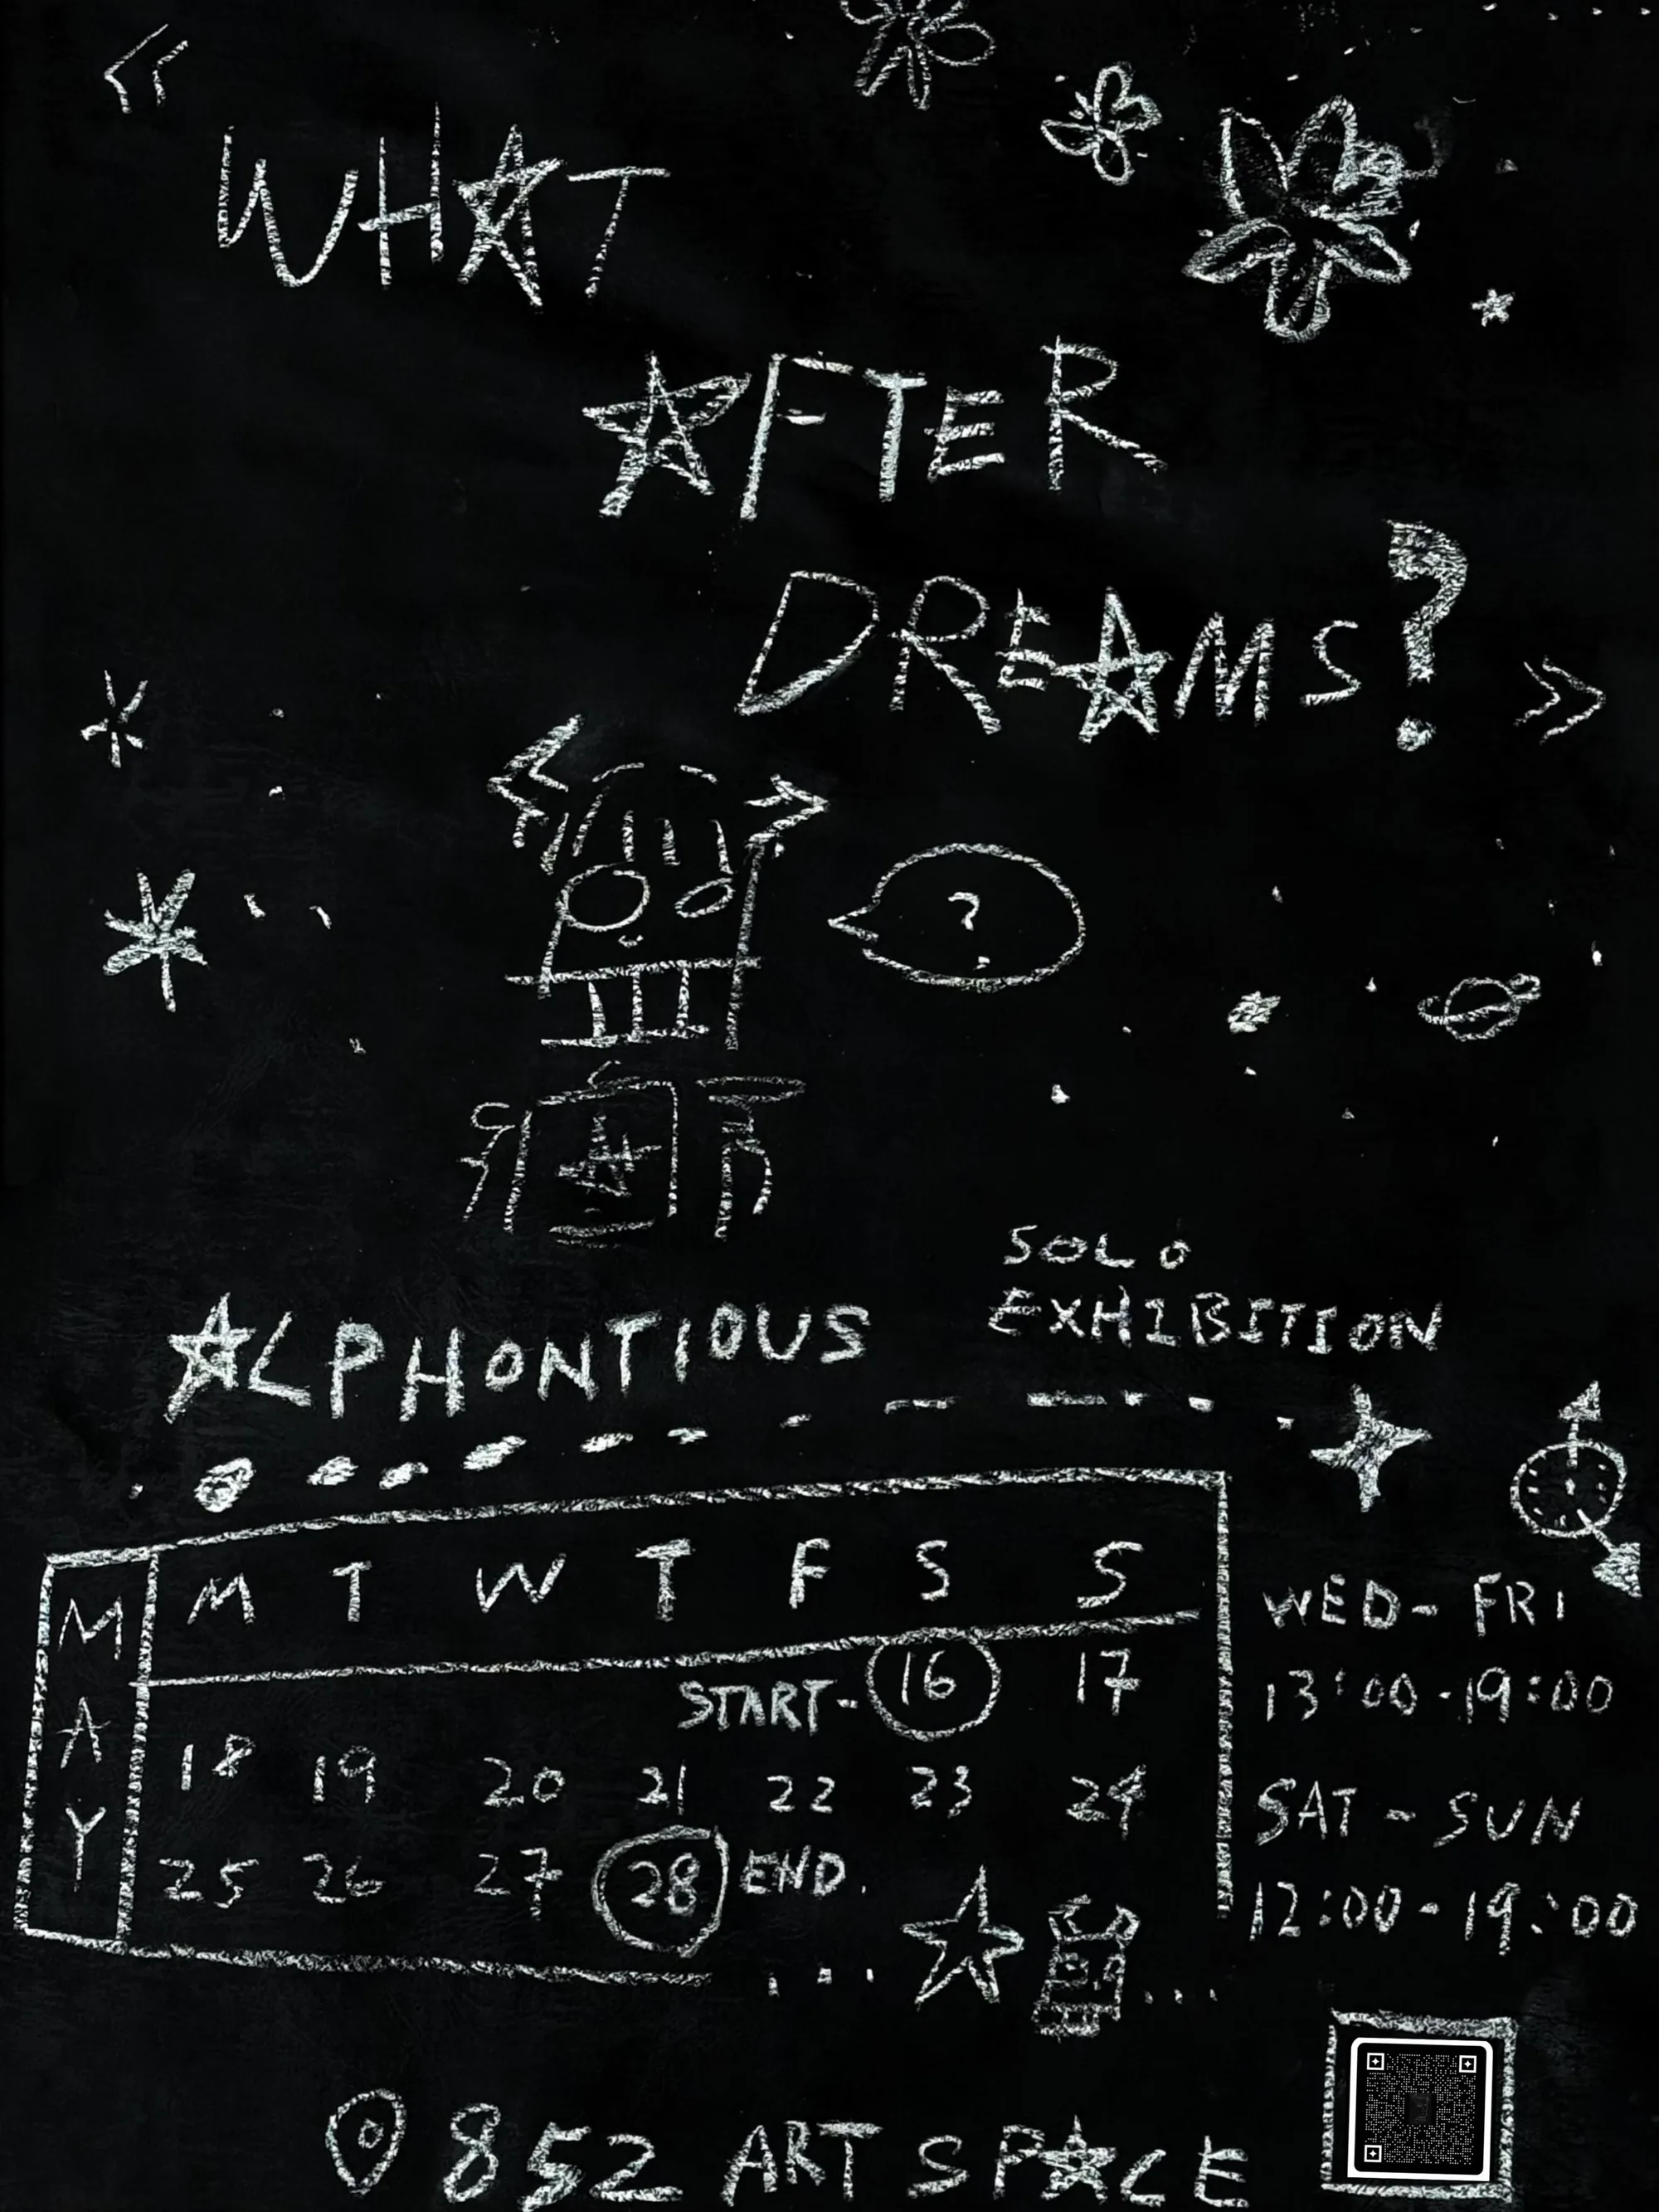 « WHAT
AFTER
DREAMS? »
?
ALPHONTIOUS
SOLO
EXHIBITION
MAY
M T W T F S S
START - 16 17
18 19 20 21 22 23 24
25 26 27 28 END.
WED - FRI
13:00 - 19:00
SAT - SUN
12:00 - 19:00
852 ART SPACE